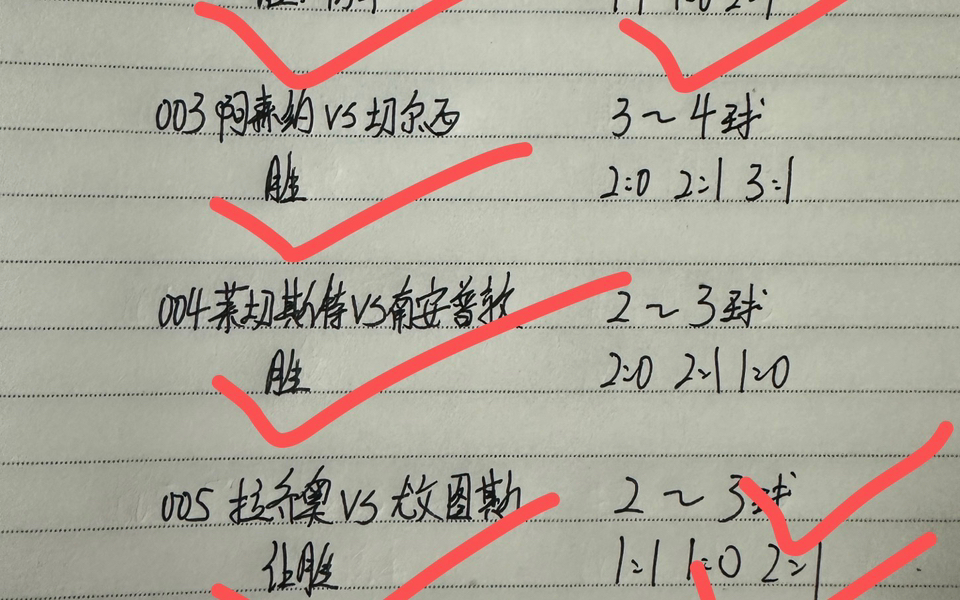 1:1 1:0 2:1
003 阿森纳 VS 切尔西 3～4球
胜 2:0 2:1 3:1
004 莱切斯特 VS 南安普敦 2～3球
胜 2:0 2:1 1:0
005 拉齐奥 VS 尤文图斯 2～3球
任胜 1:1 1:0 2:1